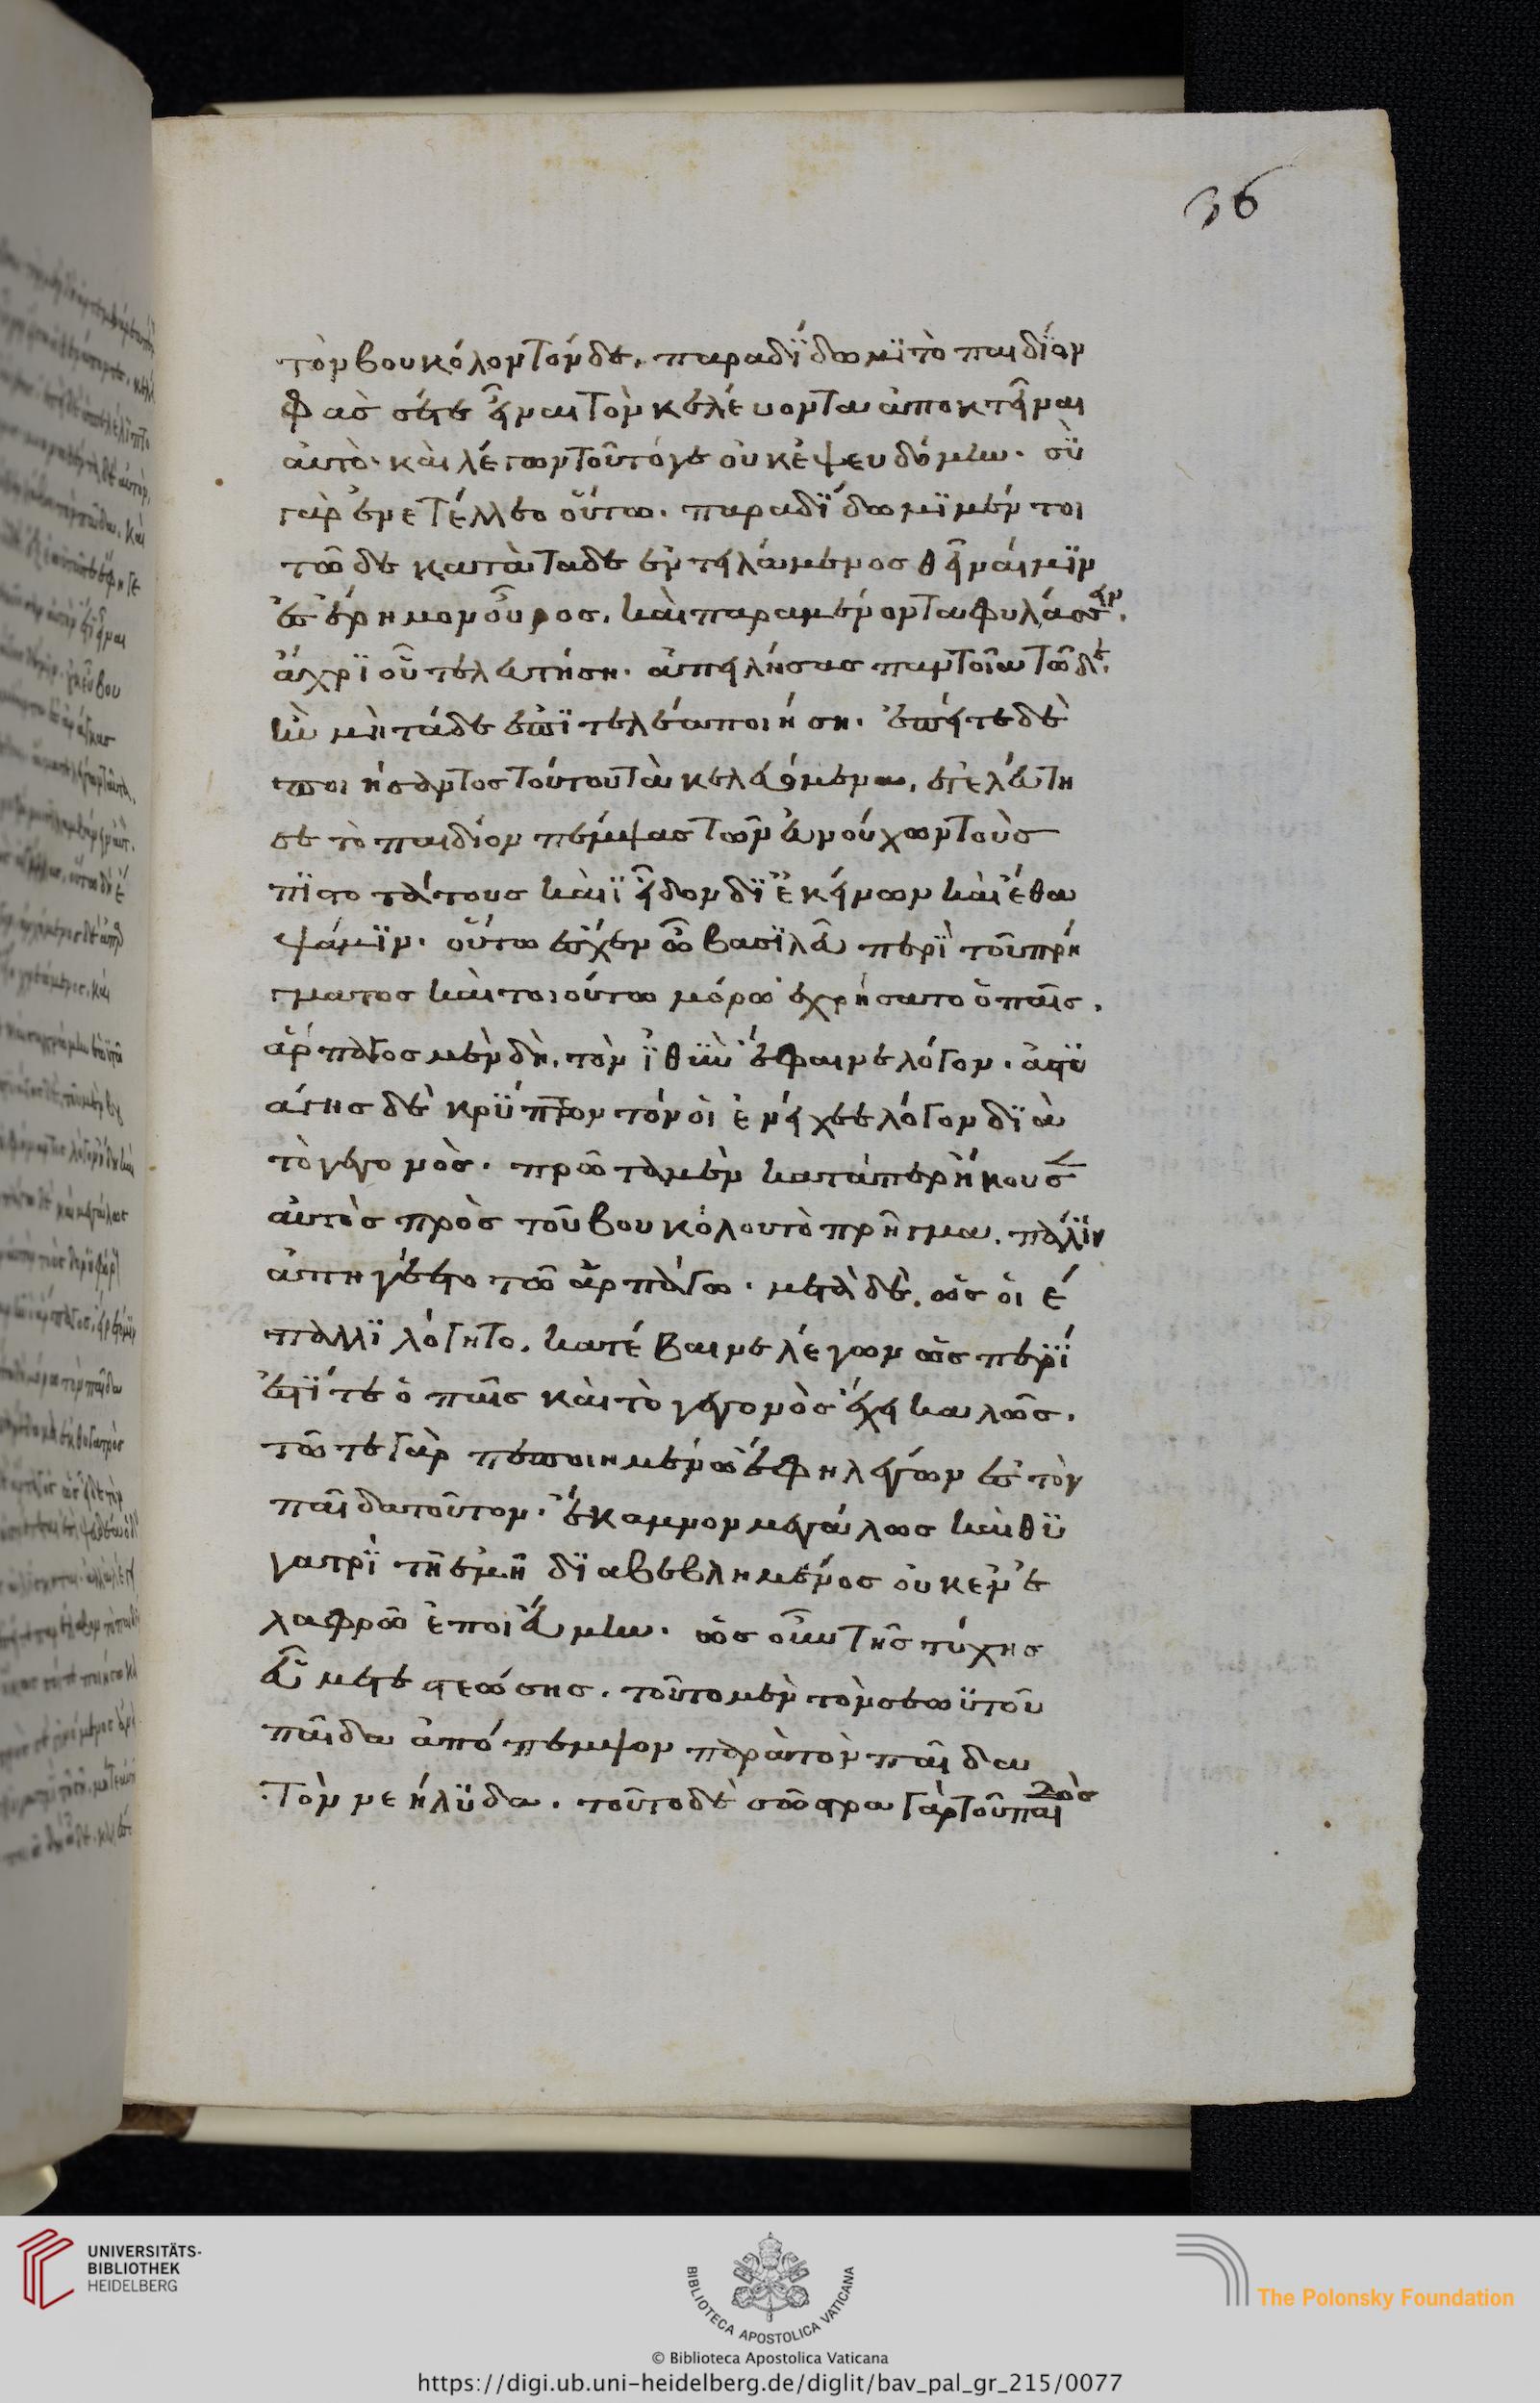 36
τὸν βουκόλον τόνδε, παραδίδωμι τὸ παιδίον
φὰς σέτε εἶναι τὸν κελέυοντα ἀποκτεῖναι
ἀυτό· καὶ λέγων τοῦτόγε οὐκ ἐψευδόμην. σὺ
γὰρ ἐνετέλλεο οὕτω. παραδίδωμι μέντοι
τῶδε κατὰ τάδε ἐντειλάμενος θεῖναί μιν
ἐς ἔρημον οὖρος, καὶ παραμένοντα φυλάσσειν.
ἄχρι οὗ τελευτήση. ἀπειλήσας παντοῖα τῶδε,
ἢν μὴ τάδε ἐπιτελέα ποιήση. ἐπείτε δὲ
ποιήσαντος τούτου τὰ κελευόμενα, ἐτελέυτη
σε τὸ παιδίον πέμψας τῶν ἐυνούχων τοὺς
πιστοτάτους καὶ εἶδον δι ἐκείνων καὶ ἔθα
ψάμιν. οὕτω ἔσχεν ὦ βασιλεῦ περὶ τοῦ πρή
γματος καὶ τοιούτω μόρω ἐχρήσατο ὁ παῖς.
ἅρπαγος μὲν δὴ, τὸν ἰθὺν ἔφαινε λόγον. ἀστυ
άγης δὲ κρύπτων τόν οἱ ἐνείχεε λόγον διὰ
τὸ γεγονὸς. πρῶτα μὲν κατάπερ ἤκουσε
ἀυτὸς πρὸς τοῦ βουκόλου τὸ πρῆγμα. πάλιν
ἀπηγέετο τῶ ἁρπάγω. μετὰ δὲ, ὥς οἱ ἐ
παλλιλόγητο, κατέβαινε λέγων ὡς περί
εστί τε ὁ παῖς καὶ τὸ γεγονὸς ἔχει καλῶς.
τῶ τε γὰρ πεποιημένω ἔφη λέγων ἐς τὸν
παῖδα τοῦτον. ἔκαμνον μεγάλως καὶ θυ
γατρὶ τῆ ἐμῆ διαβεβλημένος οὐκ ἐν ἐ
λαφρῶ ἐποιεύμην. ὡς οὖν τῆς τύχης
εὖ μετεστεώσης. τοῦτο μὲν τὸν σεωυτοῦ
παῖδα ἀπόπεμψον παρὰ τὸν παῖδα
τὸν νεήλυδα. τοῦτο δὲ σῶστρα γὰρ τοῦ παιδὸς
UNIVERSITÄTS-
BIBLIOTHEK
HEIDELBERG
BIBLIOTECA APOSTOLICA VATICANA
The Polonsky Foundation
© Biblioteca Apostolica Vaticana
https://digi.ub.uni-heidelberg.de/diglit/bav_pal_gr_215/0077